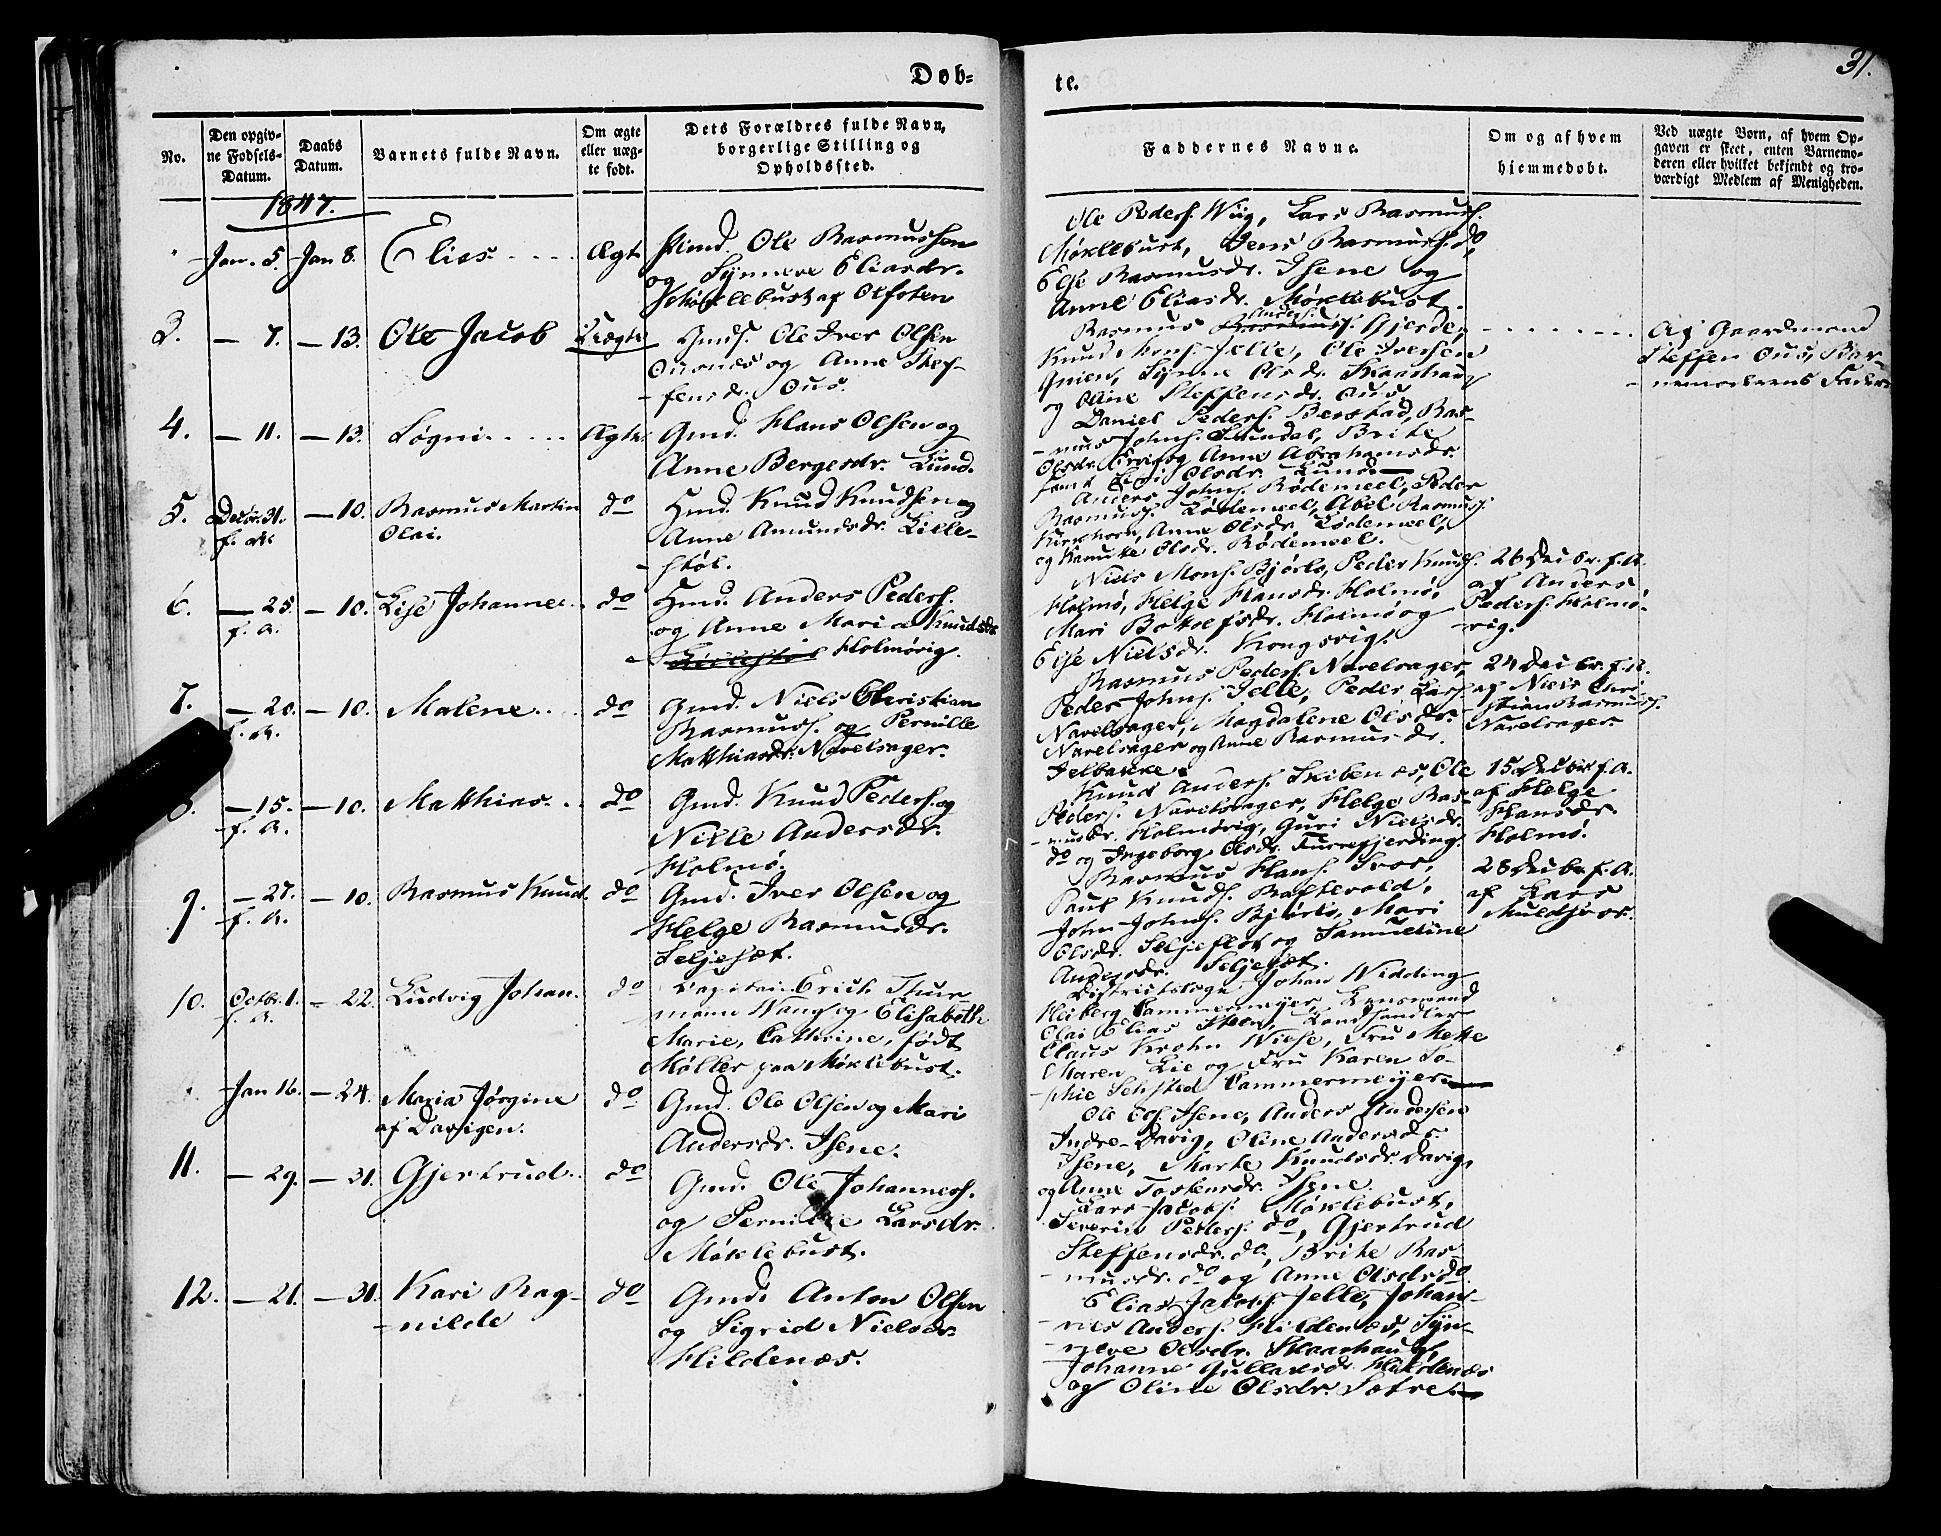 Dob=
te.
31.
No.
Den opgiv-
ne Fodsels-
Datum.
Daabs
Datum.
Barnets fulde Navn.
Om ægte
eller uæg-
te født.
Dets Forældres fulde Navn,
borgerlige Stilling og
Opholdssted.
Faddernes Navne.
Om og af hvem
hjemmedobt.
Ved uægte Born, af hvem Op-
gaven er skeet, enten Barnemo-
deren eller hvilket bekjendt og tro-
værdigt Medlem af Menigheden.
1847.
Jan. 5. Jan 8. Elias Ægt
Ole Rasmussen
og Synneve Eliasdr.
af Olsoten
Ole Peders. Wiig, Lars Rasmuss.
Møklebust, Jens Rasmuss. do,
Else Rasmusdr. Isene og
Anne Eliasdr. Møklebust.
2. — 7. — 13. Ole Jacob Uægte
Gmds. Ole Iver Olsen
Ousnes og Anne Stef-
fensdr. Ous.
Rasmus Anders. Gjerde,
Knud Mons. Jelle, Ole Iversen
Synne Olsdr. Skaarhaug
og Oline Steffensdr. Ous.
Af Gaardmand
Steffen Ous, Bar-
nemoderens Fader
4. — 11. — 13. Søgni Ægte
Gmd. Hans Olsen og
Anne Bergesdr. Lund.
Daniel Peders. Berstad, Ras-
mus Johns. Sundal, Brite
Olsdr. og Anne Abrahamsdr.
Olsdr. Lund
5. Decbr. 31. f. A. — 10. Rasmus Martin
Olai. do
Hmd. Knud Knudsen og
Anne Amundsdr. Lille-
støl.
Anders Johns. Rødemeel, Peder
Rasmuss. Rødemeel, Abel Rasmuss.
Kirkhorn, Anne Olsdr. Rødemeel,
og Olsdr. Rødemeel.
6. — 25. f. A. — 10. Lise Johanne do
Hmd. Anders Peders.
og Anne Maria Knudsdr.
Holmøvig.
Niels Mons. Bjørlo, Peder Knuds.
Holmø, Helge Hansdr. Holmø,
Mari Botolfsdr. Holmø og
Else Nielsdr. Kongsvig.
26 Decbr. f. A.
af Anders
Peders. Holmø-
vig.
7. — 20. f. A. — 10. Malene do
Gmd. Niels Christian
Rasmuss. og Pernille
Matthiasdr. Navelsager.
Rasmus Peders. Navelsager,
Peder Johns. Jelle, Peder Lars.
Navelsager, Magdalene Olsdr.
Navelsager og Anne Rasmusdr.
Jelbakke.
24 Decbr. f. A.
af Niels Chri-
stian Rasmuss.
Navelsager.
8. — 15. f. A. — 10. Matthias do
Gmd. Knud Peders. og
Nille Andersdr.
Holmø.
Knud Anders. Skibenes, Ole
Peders. Navelsager, Helge Ras-
musdr. Holmøvig, Guri Nielsdr.
do og Ingeborg Olsdr. Furrefjerding.
15 Decbr. f. A.
af Helge
Hansdr.
Holmø.
9. — 27. f. A. — 10. Rasmus Knud do
Gmd. Iver Olsen og
Helge Rasmusdr.
Seljeset.
Rasmus Hans. Svor,
Paul Knuds. Raftevold,
John Johns. Bjørlo, Mari
Olsdr. Seljeflot og Samueline
Andersdr. Seljeset.
28 Decbr. f. A.
af Lars
Muldsvor.
10. Octbr. 1. f. A. — 22. Ludvig Johan. do
Capitain Erich Thur-
mann Wang og Elisabeth
Marie, Cathrine, født
Møller paa Møklebust.
Districtslæge Johan Widding
Heiberg Cammermeyer, Lensmand
Olai Elias Steen, Landhandler
Claus Krohn Wiese, Fru Mette
Maren Lie og Fru Karen So-
phie Sehsted Cammermeyer
Jan 16. — 24. Maria Jørgine
af Davigen. do
Gmd. Ole Olsen og Mari
Andersdr. Isene.
Ole Ols. Isene, Anders Andersen
Indre-Davig, Oline Andersdr.
Isene, Marte Knudsdr. Davig,
og Anne Tostensdr. Isene.
11. — 29. — 31. Gjertrud do
Gmd. Ole Johanness.
og Pernille Larsdr.
Møklebust.
Lars Jacobs. Møklebust,
Severin Peders. do, Gjertrud
Steffensdr. do, Brite Ras-
musdr. do og Anne Olsdr do.
12. — 21. — 31. Kari Rag-
nilde do
Gmd. Anton Olsen
og Sigrid Nielsdr.
Hildenæs.
Elias Jacobs. Jelle, Johan-
nes Anders. Hildenæs, Syn-
neve Olsdr. Skaarhaug,
Johanne Gullaksdr. Hildenæs
og Oline Olsdr. Sætre.